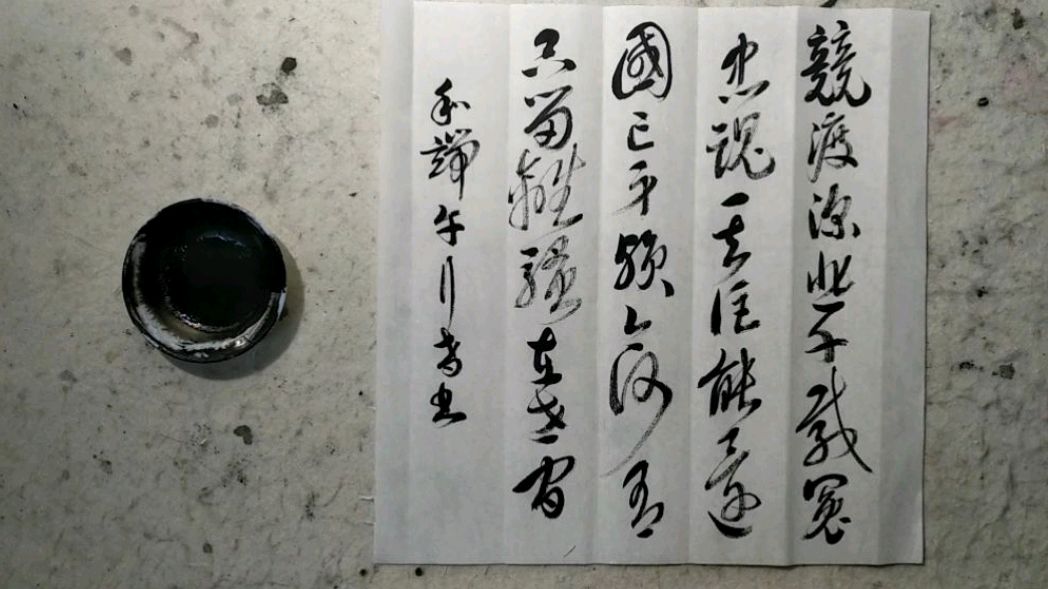 競渡深悲千載冤
忠魂一去詎能還
國亡身殞今何有
只留離騷在世間
和端午